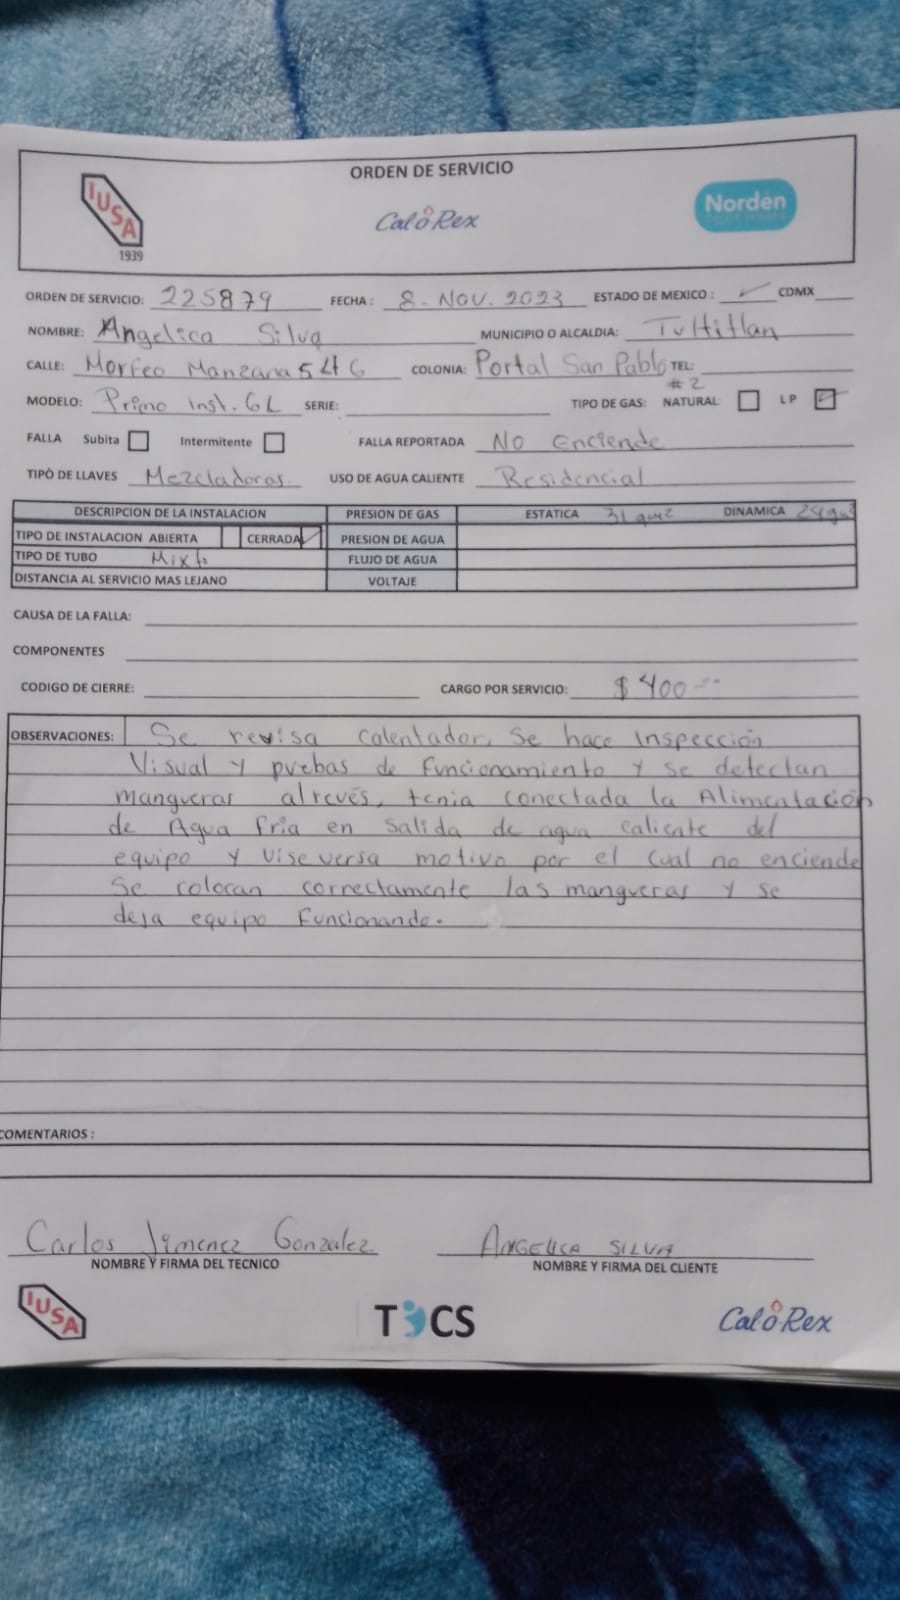 ORDEN DE SERVICIO
IUSA 1939 CaloRex Norden
ORDEN DE SERVICIO: 225879 FECHA: 8. NOV. 2023 ESTADO DE MEXICO: ✓ CDMX
NOMBRE: Angelica Silva MUNICIPIO O ALCALDIA: Tultitlan
CALLE: Morfeo Manzana 546 COLONIA: Portal San Pablo TEL:
#2
MODELO: Primo Inst. 6L SERIE: TIPO DE GAS: NATURAL LP
FALLA Subita Intermitente FALLA REPORTADA No enciende
TIPÒ DE LLAVES Mezcladoras USO DE AGUA CALIENTE Residencial
DESCRIPCION DE LA INSTALACION PRESION DE GAS ESTATICA 31 DINAMICA
TIPO DE INSTALACION ABIERTA CERRADA ✓ PRESION DE AGUA
TIPO DE TUBO Mixto FLUJO DE AGUA
DISTANCIA AL SERVICIO MAS LEJANO VOLTAJE
CAUSA DE LA FALLA:
COMPONENTES
CODIGO DE CIERRE: CARGO POR SERVICIO: $400
OBSERVACIONES: Se revisa calentador, se hace inspección
Visual y pruebas de funcionamiento y se detectan
mangueras alrevés, tenia conectada la Alimentación
de Agua fria en salida de agua caliente del
equipo y viseversa motivo por el cual no enciende
se colocan correctamente las mangueras y se
deja equipo funcionando.
COMENTARIOS :
Carlos Jimenez Gonzalez ANGELICA SILVA
NOMBRE Y FIRMA DEL TECNICO NOMBRE Y FIRMA DEL CLIENTE
IUSA TICS CaloRex